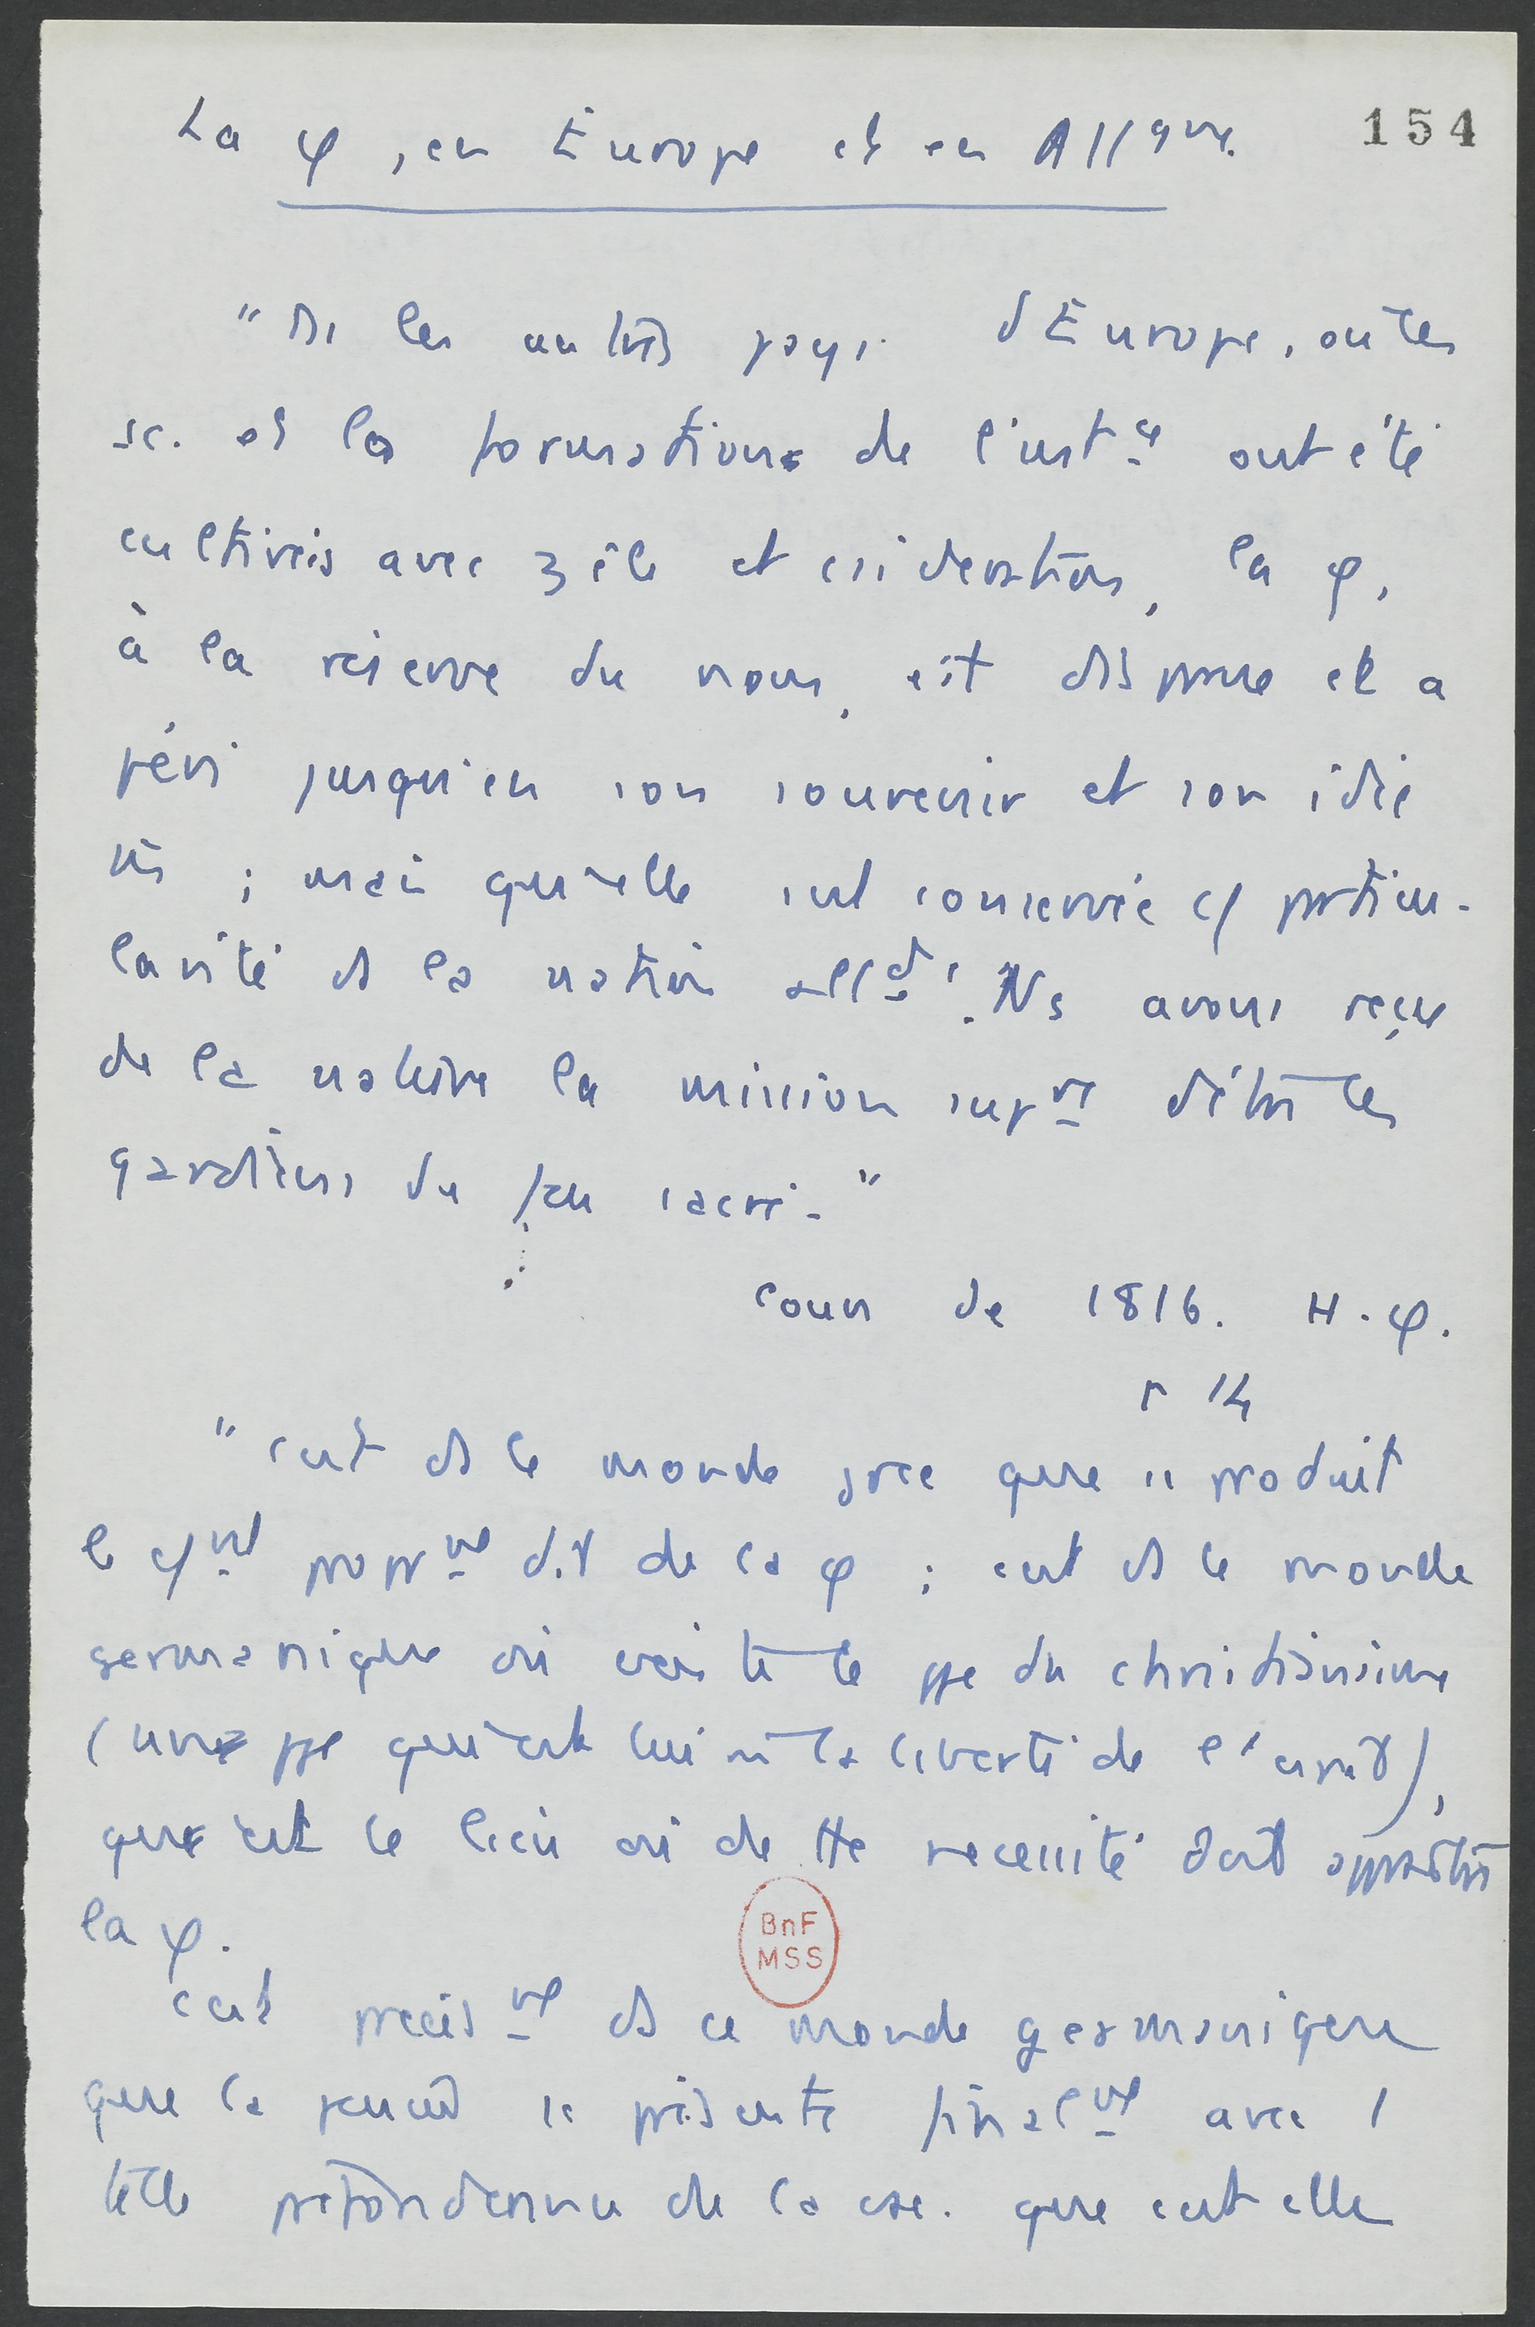 154
La φ, en Europe et en Allgne.
"Ds les autres pays d'Europe, où les
sc. et la formation de l'intce ont été
cultivés avec zèle et csidération, la φ,
à la réserve du nom, est disparue et a
péri jusqu'en son souvenir et son idée
; mais qu'elle s'est conservée c/ particu-
larité ds la nation alld. Ns avons reçu
de la nature la mission supre d'être les
gardiens du feu sacré."
Cours de 1816. H.φ.
p 14
"c'est ds le monde grec que se produit
le c/nt propnt dit de la φ ; c'est ds le monde
germanique où existe le ppe du christianisme
(un ppe qui est lui m la liberté de l'esprit),
que est le lieu où de tte nécessité doit apparaître
la φ.
C'est précisnt ds ce monde germanique
que la pensée se présente finalnt avec 1
telle profondeur de la csc. que c'est elle
BnF
MSS